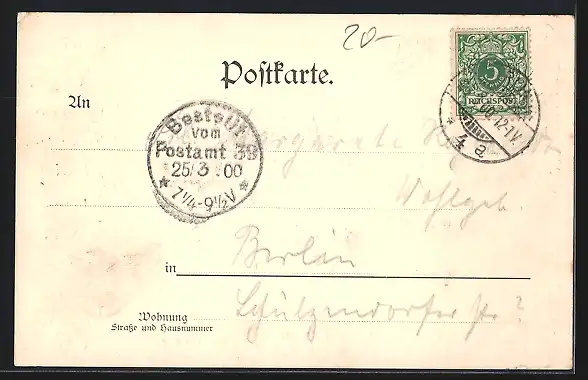 20-
Postkarte.
5
REICHSPOST
An
Bestellt
vom
Postamt 39
25/3.00
* 7 1/4-9 1/2 V *
12-1 V.
* 4 a
Wohlgeb.
in Berlin
Wohnung
Straße und Hausnummer
Schulzendorfer str ?